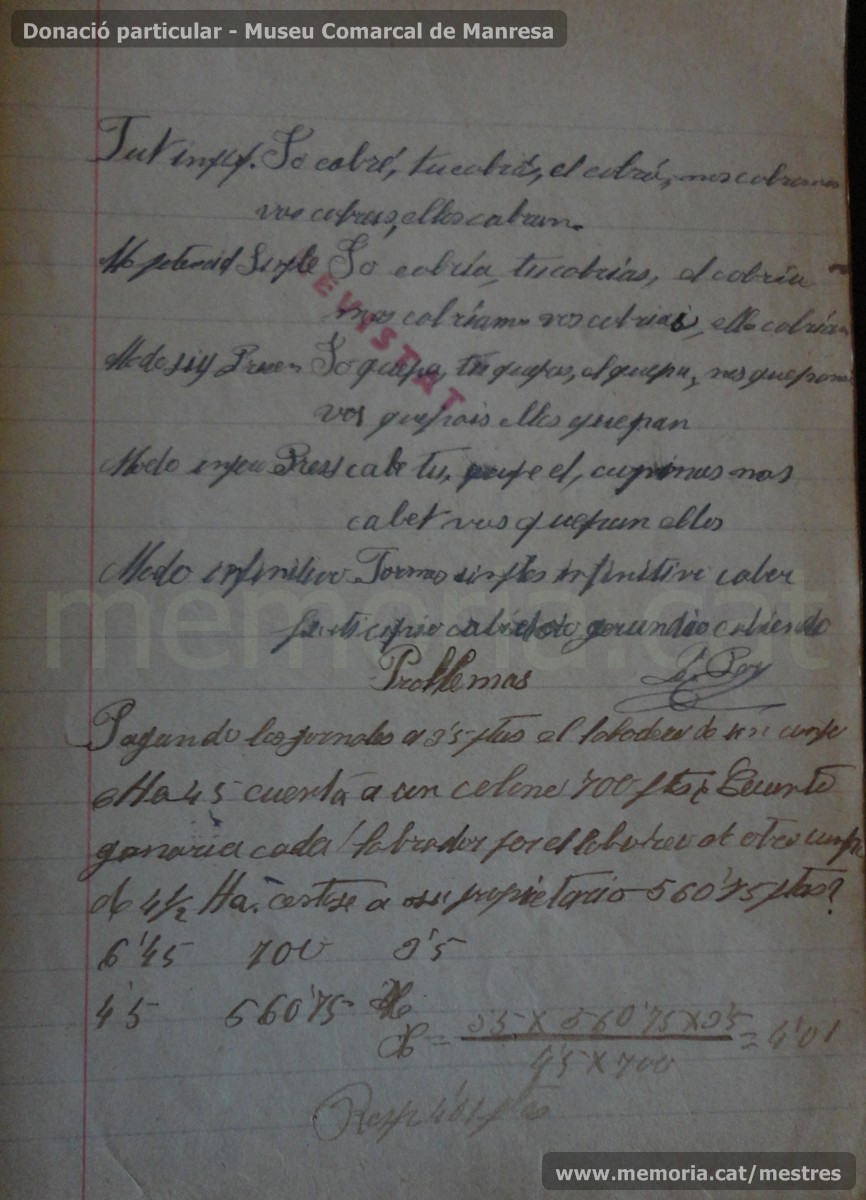 Donació particular - Museu Comarcal de Manresa
Fut imp. Yo cabré, tu cabrás, el cabrá, nos cabremos
vos cabreis, ellos cabran.
Mo potencial Simple Yo cabría, tu cabrias, el cabria
nos cabríamos vos cabriais, ellos cabrían
REVISTAT
Modo Presen Yo quepa, tu quepas, el quepa, nos quepamos
vos quepais ellos quepan
Modo Pres cabe tu, quepe el, nos
cabet vos quepan ellos
Modo infinitivo Formas simples infinitivo caber
participio cabido gerundio cabiendo
Problemas
Pagando los jornales a 3'5 ptas el de un campo
Ha 45 cuesta a un colono 700 ptas ¿Cuanto
ganaria cada labrador por el laboreo de otro campo
de 4 1/2 Ha. costase a su propietario 560'75 ptas?
6'45 700 3'5
4'5 560'75 X
X = 560'75 x 3'5 = 4'01
4'5 x 700
Resp 4'01 ptas
memoria.cat
www.memoria.cat/mestres